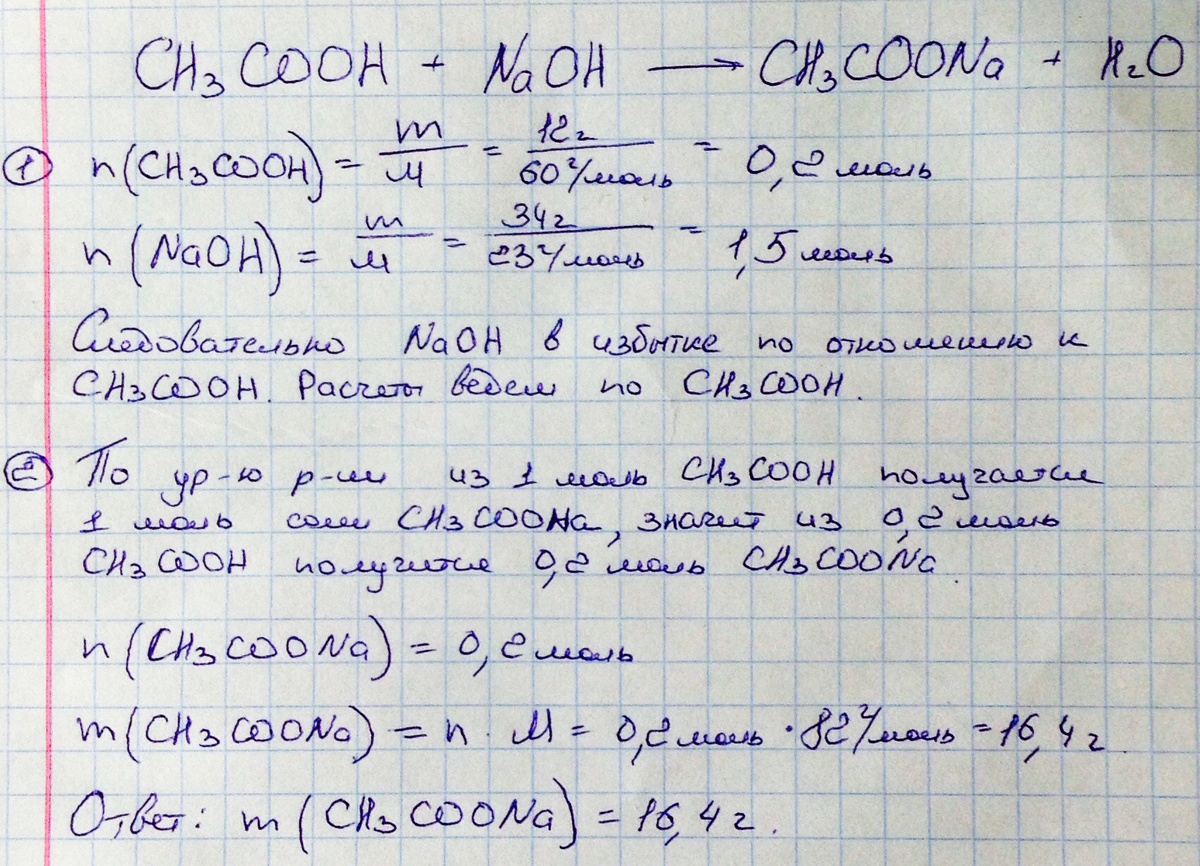 CH₃COOH + NaOH → CH₃COONa + H₂O
① n(CH₃COOH) = m/M = 12г/60г/моль = 0,2 моль
n(NaOH) = m/M = 34г/23г/моль = 1,5 моль
Следовательно NaOH в избытке по отношению к
CH₃COOH. Расчеты ведем по CH₃COOH.
② По ур-ю р-ии из 1 моль CH₃COOH получается
1 моль соли CH₃COONa, значит из 0,2 моль
CH₃COOH получится 0,2 моль CH₃COONa
n(CH₃COONa) = 0,2 моль
m(CH₃COONa) = n · M = 0,2 моль · 82г/моль = 16,4г.
Ответ: m(CH₃COONa) = 16,4г.